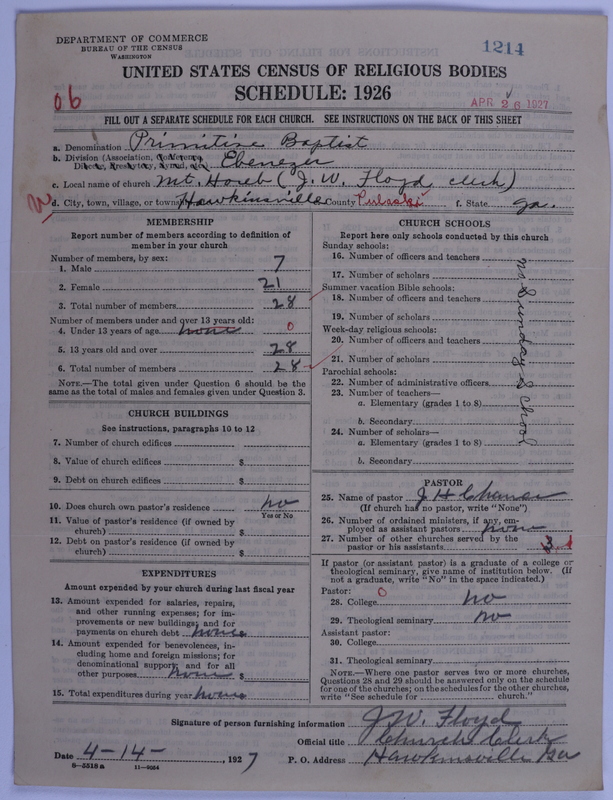 DEPARTMENT OF COMMERCE
BUREAU OF THE CENSUS
WASHINGTON
1214
UNITED STATES CENSUS OF RELIGIOUS BODIES
SCHEDULE: 1926
06
APR 26 1927
FILL OUT A SEPARATE SCHEDULE FOR EACH CHURCH. SEE INSTRUCTIONS ON THE BACK OF THIS SHEET
a. Denomination Primitive Baptist
b. Division (Association, Conference, Ebenezer
Diocese, Presbytery, Synod, etc.)
c. Local name of church Mt. Horeb (J. W. Floyd, clerk)
d. City, town, village, or town Hawkinsville County Pulaski f. State Ga.
MEMBERSHIP
Report number of members according to definition of
member in your church
Number of members, by sex:
1. Male 7
2. Female 21
3. Total number of members 28
Number of members under and over 13 years old:
4. Under 13 years of age none 0
5. 13 years old and over 28
6. Total number of members 28
NOTE.—The total given under Question 6 should be the
same as the total of males and females given under Question 3.
CHURCH BUILDINGS
See instructions, paragraphs 10 to 12
7. Number of church edifices
8. Value of church edifices $
9. Debt on church edifices $
10. Does church own pastor's residence no
Yes or No
11. Value of pastor's residence (if owned by
church) $
12. Debt on pastor's residence (if owned by
church) $
EXPENDITURES
Amount expended by your church during last fiscal year
13. Amount expended for salaries, repairs,
and other running expenses; for im-
provements or new buildings; and for
payments on church debt none
14. Amount expended for benevolences, in-
cluding home and foreign missions; for
denominational support; and for all
other purposes none $
15. Total expenditures during year none
CHURCH SCHOOLS
Report here only schools conducted by this church
Sunday schools:
16. Number of officers and teachers
17. Number of scholars
Summer vacation Bible schools:
18. Number of officers and teachers
19. Number of scholars
Week-day religious schools:
20. Number of officers and teachers
21. Number of scholars
Parochial schools:
22. Number of administrative officers
23. Number of teachers—
a. Elementary (grades 1 to 8)
b. Secondary
24. Number of scholars—
a. Elementary (grades 1 to 8)
b. Secondary
no Sunday School
PASTOR
25. Name of pastor J H
(If church has no pastor, write "None")
26. Number of ordained ministers, if any, em-
ployed as assistant pastors none
27. Number of other churches served by the
pastor or his assistants 3
If pastor (or assistant pastor) is a graduate of a college or
theological seminary, give name of institution below. (If
not a graduate, write "No" in the space indicated.)
Pastor: 0
28. College no
29. Theological seminary no
Assistant pastor:
30. College
31. Theological seminary
NOTE.—Where one pastor serves two or more churches,
Questions 28 and 29 should be answered only on the schedule
for one of the churches; on the schedules for the other churches,
write "See schedule for church."
Signature of person furnishing information J. W. Floyd
Official title Church Clerk
Date 4-14-, 1927 P. O. Address Hawkinsville Ga
8-5518a 11-9054